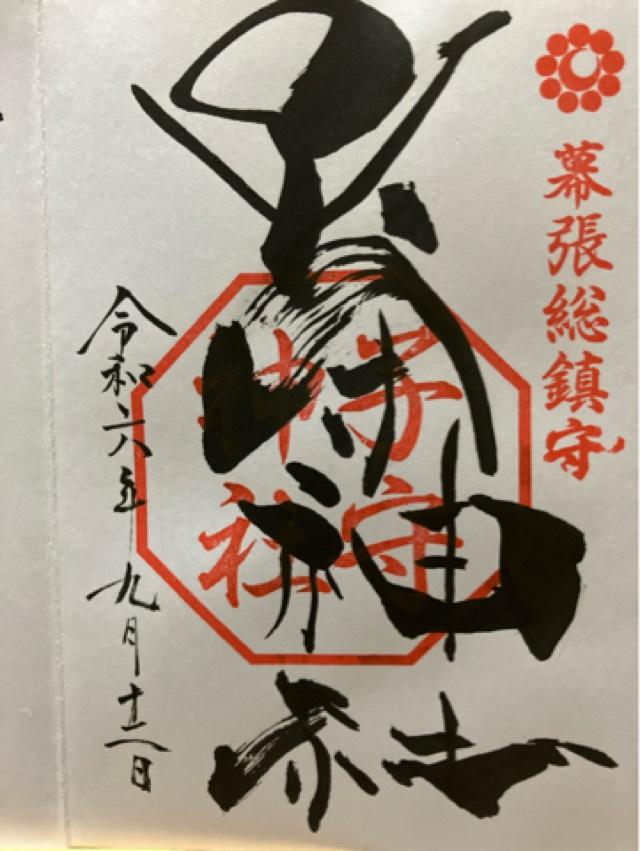 幕張総鎮守
子守神社
子守
神社
令和六年九月